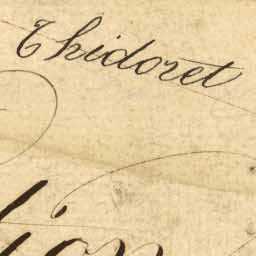 Thidoret
tion